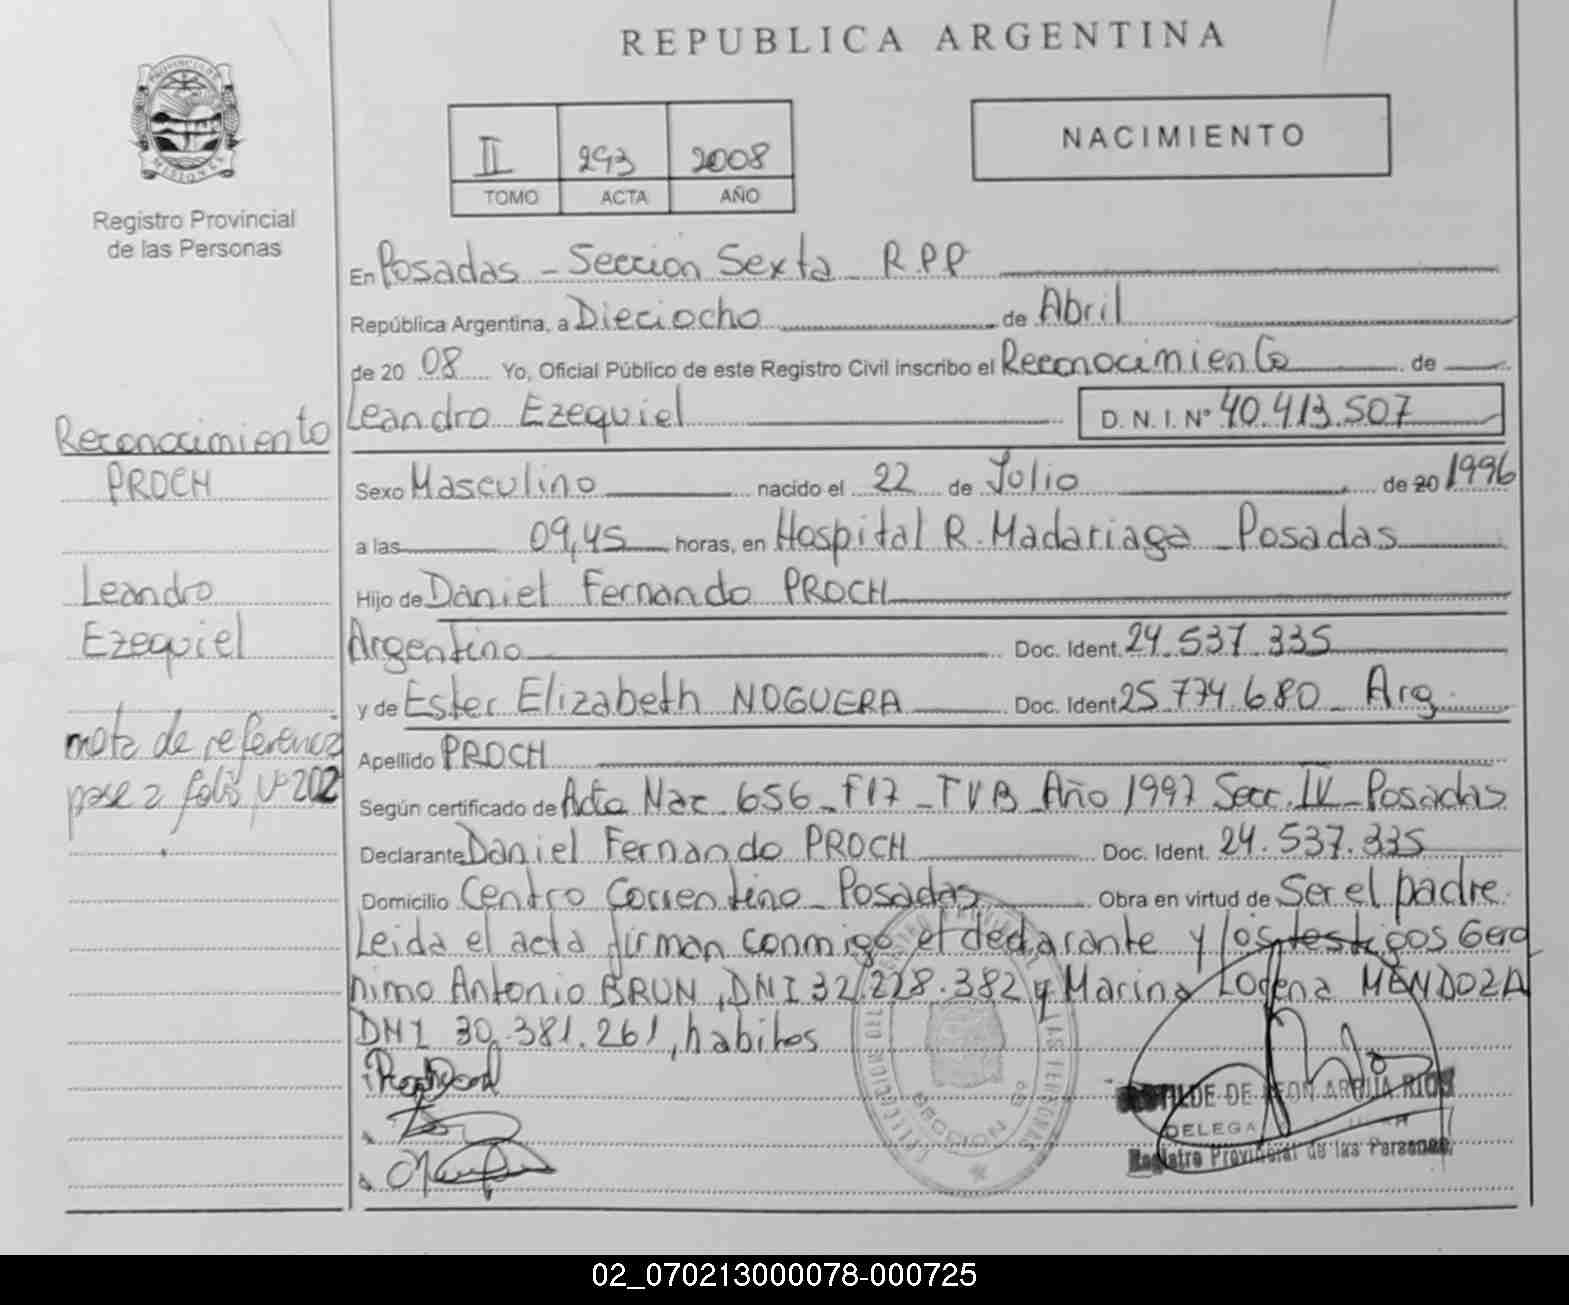 PROVINCIA DE
MISIONES
Registro Provincial
de las Personas
REPUBLICA ARGENTINA
II 293 2008
TOMO ACTA AÑO
NACIMIENTO
En Posadas - Sección Sexta R.P.P
República Argentina, a Dieciocho de Abril
de 20 08 Yo, Oficial Público de este Registro Civil inscribo el Reconocimiento de
Leandro Ezequiel D. N. I. Nº 40.413.507
Sexo Masculino nacido el 22 de Julio de 20 1996
a las 09,45 horas, en Hospital R. Madariaga - Posadas
Hijo de Daniel Fernando PROCH
Argentino Doc. Ident. 24.537.335
y de Ester Elizabeth NOGUERA Doc. Ident 25.774.680 Arg.
Apellido PROCH
Según certificado de Acta Nac 656 - F17 - TVB Año 1997 Secc. IV - Posadas
Declarante Daniel Fernando PROCH Doc. Ident. 24.537.335
Domicilio Centro Correntino - Posadas Obra en virtud de Ser el padre.
Leida el acta firman conmigo el declarante y los testigos Gero
nimo Antonio BRUN, DNI 32.228.382 y Marina Lorena MENDOZA
DNI 30.381.261, habiles
Reconocimiento
PROCH
Leandro
Ezequiel
nota de referencia
pase a folio Nº 202
SECCION 6º
DE LEON ARRUA RIOS
DELEGA
Registro Provincial de las Personas
02_070213000078-000725